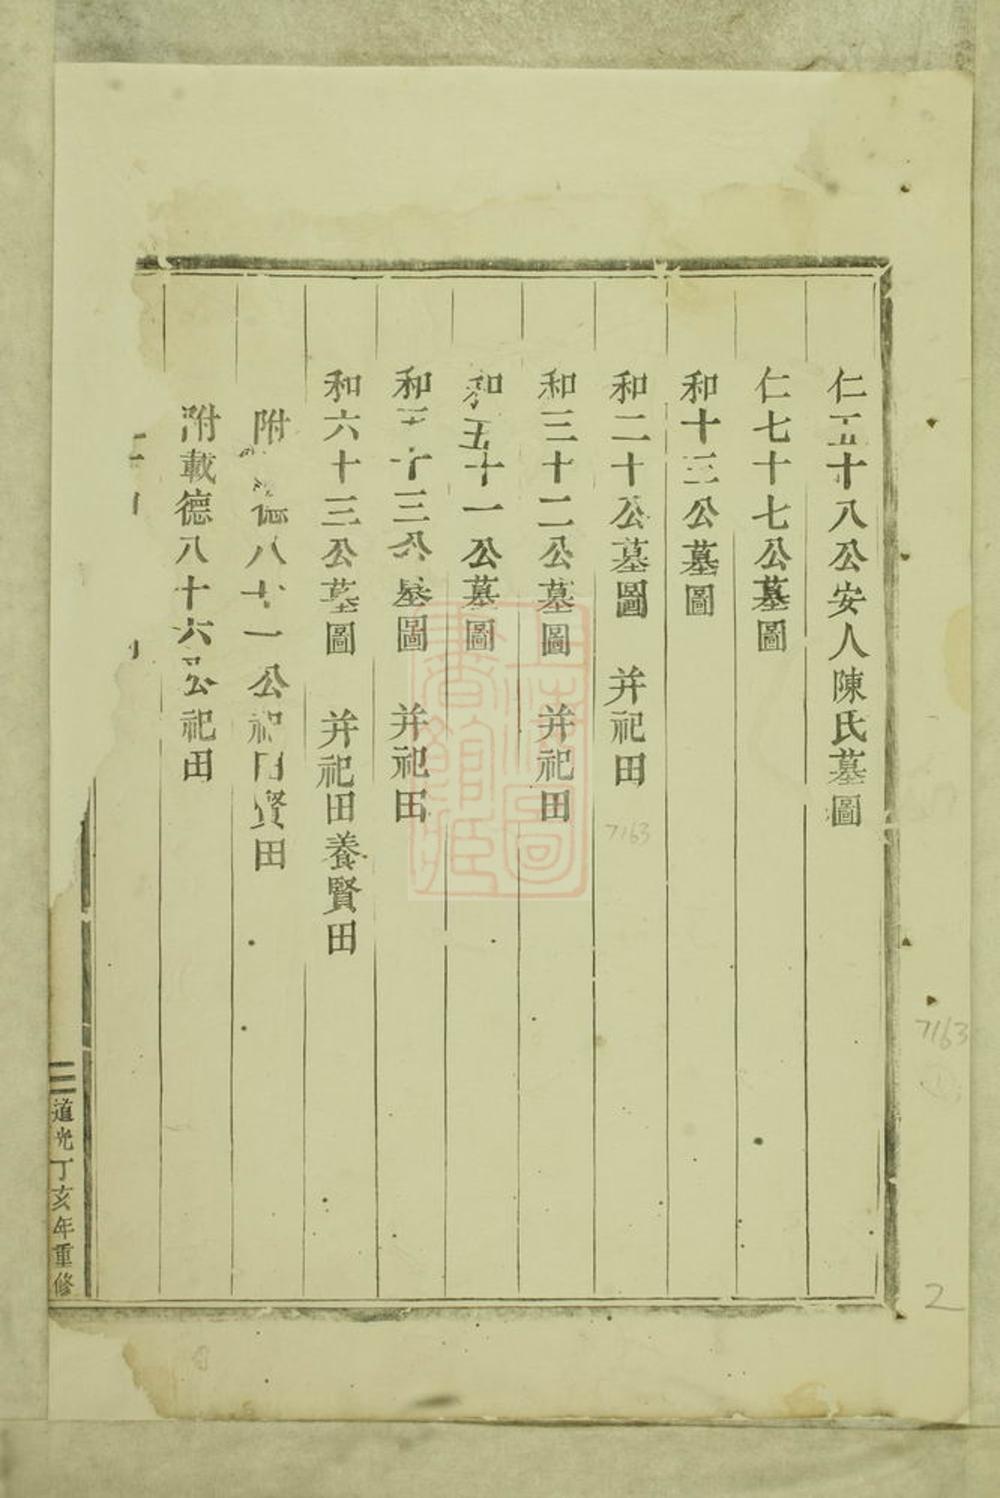 仁五十八公安人陳氏墓圖
仁七十七公墓圖
和十三公墓圖
和二十公墓圖　并祀田
和三十二公墓圖　并祀田
和五十一公墓圖
和五十三公墓圖　并祀田
和六十三公墓圖　并祀田養賢田
附　德八十一公祀田賢田
附載德八十六公祀田
三
道光丁亥年重修
7163
7163
2